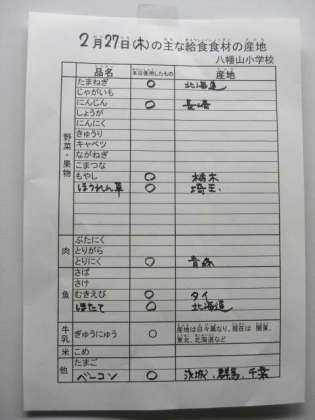 2月27日(木)の主な給食食材の産地
八幡山小学校
品名 本日使用したもの 産地
野菜・果物
たまねぎ ○ 北海道
じゃがいも
にんじん ○ 長崎
しょうが
にんにく
きゅうり
キャベツ
ながねぎ
こまつな
もやし ○ 栃木
ほうれん草 ○ 埼玉
肉
ぶたにく
とりがら
とりにく ○ 青森
魚
さば
さけ
むきえび ○ タイ
ほたて ○ 北海道
牛乳 ぎゅうにゅう ○ 産地は日々異なり、現在は 関東、
東北、北海道など
米 こめ
他
たまご
ベーコン ○ 茨城、群馬、千葉